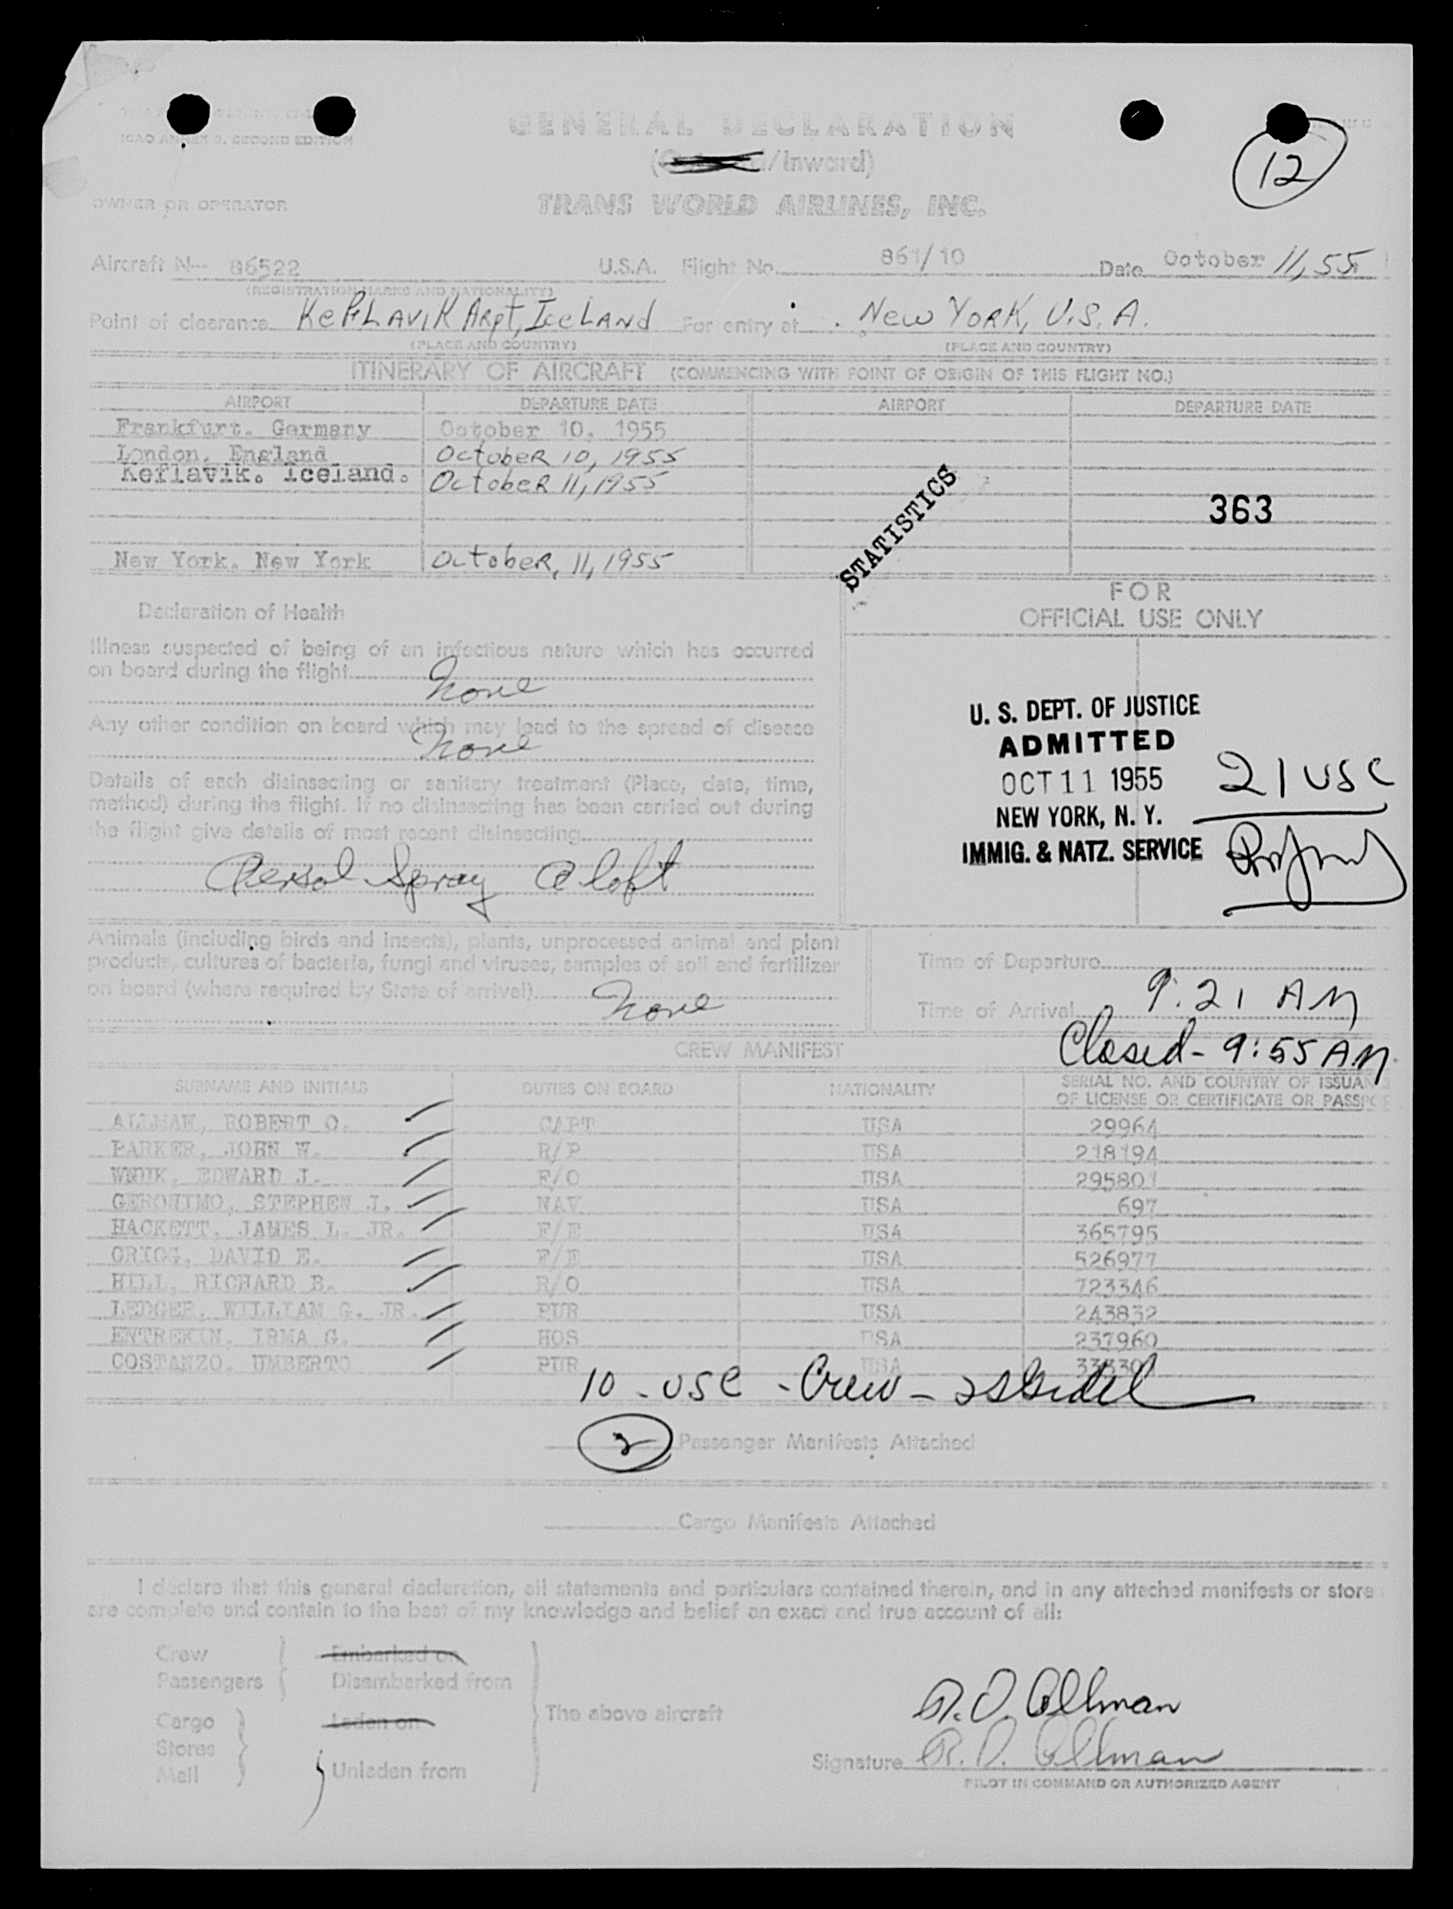 ICAO ANNEX 9, SECOND EDITION
GENERAL DECLARATION
(/Inward)
12
OWNER OR OPERATOR
TRANS WORLD AIRLINES, INC.
Aircraft N-- 86522 U.S.A. Flight No. 861/10 Date October 11, 55
(REGISTRATION MARKS AND NATIONALITY)
Point of clearance KeFLAVIK ARpt, IceLANd For entry at New YORK, U.S.A.
(PLACE AND COUNTRY) (PLACE AND COUNTRY)
ITINERARY OF AIRCRAFT (COMMENCING WITH POINT OF ORIGIN OF THIS FLIGHT NO.)
AIRPORT DEPARTURE DATE AIRPORT DEPARTURE DATE
Frankfurt. Germany October 10, 1955
London, England OctobeR 10, 1955
Keflavik. Iceland. OctobeR 11, 1955
STATISTICS
363
New York. New York OctobeR, 11, 1955
FOR
OFFICIAL USE ONLY
Declaration of Health
Illness suspected of being of an infectious nature which has occurred
on board during the flight
None
Any other condition on board which may lead to the spread of disease
None
Details of each disinsecting or sanitary treatment (Place, date, time,
method) during the flight. If no disinsecting has been carried out during
the flight give details of most recent disinsecting
Aersol Spray Aloft
U. S. DEPT. OF JUSTICE
ADMITTED
OCT 11 1955
NEW YORK, N. Y.
IMMIG. & NATZ. SERVICE
21 USC
Animals (including birds and insects), plants, unprocessed animal and plant
products, cultures of bacteria, fungi and viruses, samples of soil and fertilizer
on board (where required by State of arrival) None
Time of Departure
Time of Arrival 9:21 AM
Closed - 9:55 AM.
CREW MANIFEST
SURNAME AND INITIALS DUTIES ON BOARD NATIONALITY SERIAL NO. AND COUNTRY OF ISSUAN
OF LICENSE OR CERTIFICATE OR PASSPO
ALLMAN, ROBERT O. CAPT USA 29964
PARKER, JOHN W. R/P USA 218194
EDWARD J. F/O USA 295801
GERONIMO, STEPHEN J. NAV USA 697
HACKETT, JAMES L. JR. F/E USA 365795
GRIGG, DAVID E. F/E USA 526977
HILL, RICHARD B. R/O USA 723346
LEDGER, WILLIAM G. JR. PUR USA 243832
ENTREKIN, IRMA G. HOS USA 237960
COSTANZO, UMBERTO PUR USA
10 - USC - Crew -
2 Passenger Manifests Attached
Cargo Manifests Attached
I declare that this general declaration, all statements and particulars contained therein, and in any attached manifests or store
are complete and contain to the best of my knowledge and belief an exact and true account of all:
Crew Embarked on
Passengers Disembarked from
The above aircraft
Cargo Laden on
Stores
Mail Unladen from
R. O. Allman
Signature R. O. Allman
PILOT IN COMMAND OR AUTHORIZED AGENT